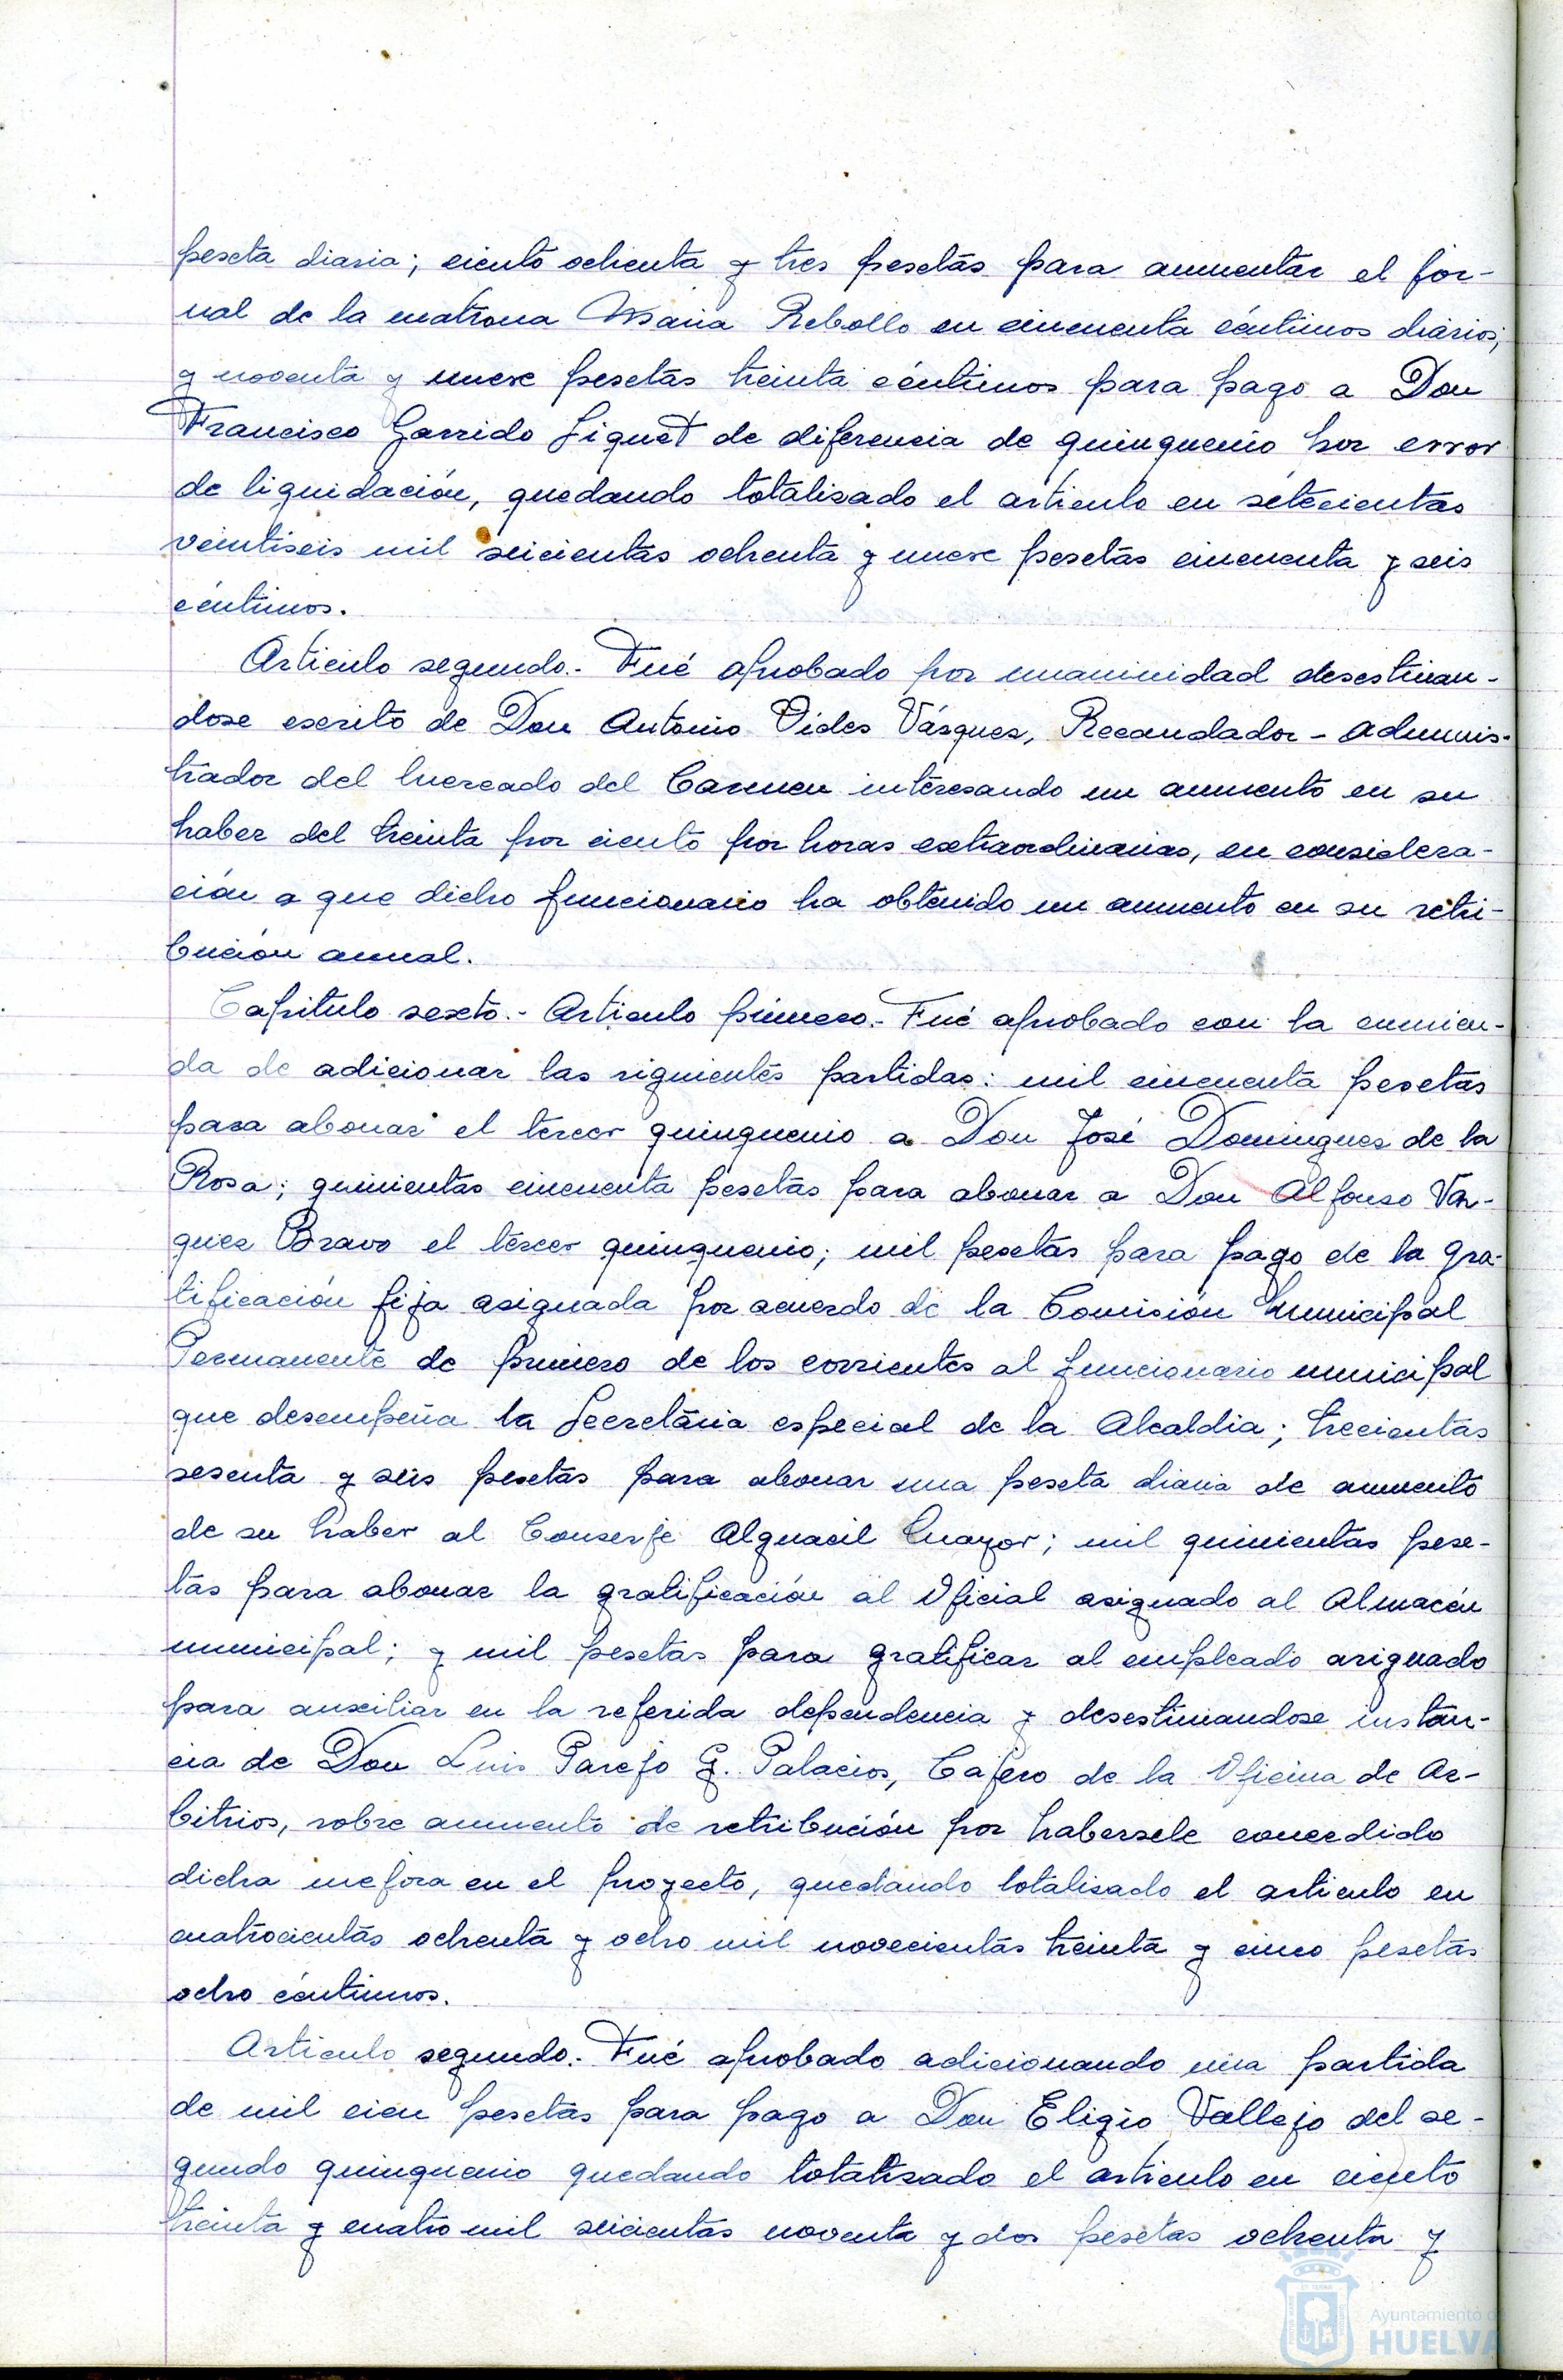 peseta diaria; ciento ochenta y tres pesetas para aumentar el jor-
nal de la matrona Maria Rebollo en cincuenta céntimos diarios;
y noventa y nueve pesetas treinta céntimos para pago a Don
Francisco Garrido Liquet de diferencia de quinquenio por error
de liquidación, quedando totalizado el artículo en setecientas
veintiseis mil seicientas ochenta y nueve pesetas cincuenta y seis
céntimos.
Artículo segundo.- Fué aprobado por unanimidad desestiman-
dose escrito de Don Antonio Vides Vázquez, Recaudador - Adminis-
trador del Mercado del Carmen interesando un aumento en su
haber del treinta por ciento por horas extraordinarias, en considera-
ción a que dicho funcionario ha obtenido un aumento en su retri-
bución anual.
Capitulo sexto.- Articulo primero.- Fué aprobado con la enmien-
da de adicionar las siguientes partidas: mil cincuenta pesetas
para abonar el tercer quinquenio a Don José Dominguez de la
Rosa; quinientas cincuenta pesetas para abonar a Don Alfonso Var-
guez Bravo el tercer quinquenio; mil pesetas para pago de la gra-
tificación fija asignada por acuerdo de la Comisión Municipal
Permanente de primero de los corrientes al funcionario municipal
que desempeña la Secretaria especial de la Alcaldia; trecientas
sesenta y seis pesetas para abonar una peseta diaria de aumento
de su haber al Conserje Alguacil Mayor; mil quinientas pese-
tas para abonar la gratificación al Oficial asignado al Almacén
municipal; y mil pesetas para gratificar al empleado asignado
para auxiliar en la referida dependencia y desestimandose instan-
cia de Don Luis Parejo G. Palacios, Cajero de la Oficina de Ar-
bitrios, sobre aumento de retribución por habersele concedido
dicha mejora en el proyecto, quedando totalizado el articulo en
cuatrocientas ochenta y ocho mil novecientas treinta y cinco pesetas
ocho céntimos.
Articulo segundo.- Fué aprobado adicionando una partida
de mil cien pesetas para pago a Don Eligio Vallejo del se-
gundo quinquenio quedando totalizado el artículo en ciento
treinta y cuatro mil seicientas noventa y dos pesetas ochenta y
Ayuntamiento de
HUELVA